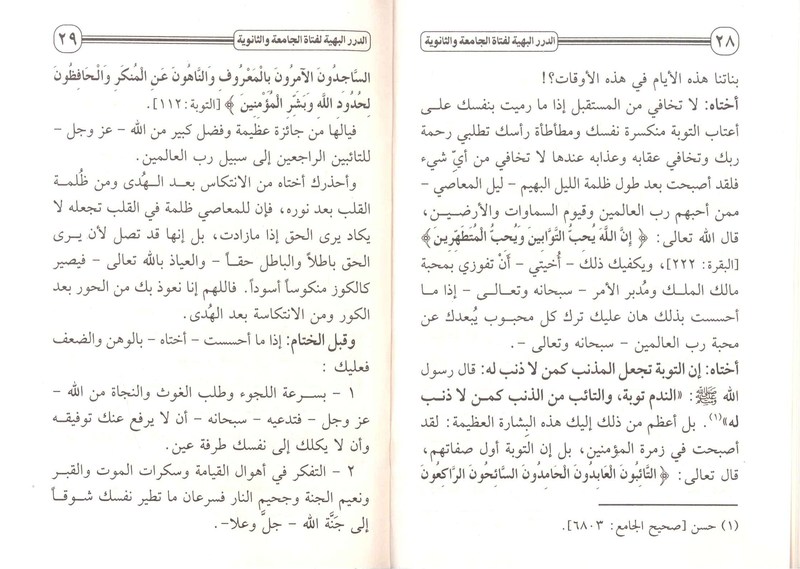 ٢٨
الدرر البهية لفتاة الجامعة والثانوية
بناتنا هذه الأيام في هذه الأوقات؟!
أختاه: لا تخافي من المستقبل إذا ما رميت بنفسك على
أعتاب التوبة منكسرة نفسك ومطأطأة رأسك تطلبي رحمة
ربك وتخافي عقابه وعذابه عندها لا تخافي من أيِّ شيء
فلقد أصبحت بعد طول ظلمة الليل البهيم - ليل المعاصي -
ممن أحبهم رب العالمين وقيوم السماوات والأرضيـن،
قال الله تعالى: ﴿ إِنَّ اللَّهَ يُحِبُّ التَّوَّابِينَ وَيُحِبُّ الْمُتَطَهِّرِينَ ﴾
[البقرة: ٢٢٢]، ويكفيك ذلك - أُخيتي - أَنْ تفوزي بمحبة
مالك الملـك ومُدبر الأمر - سبحانه وتعـالـى - إذا مـا
أحسست بذلك هان عليك ترك كل محبـوب يُبعدك عن
محبة رب العالمين - سبحانه وتعالى -.
أختاه: إن التوبة تجعل المذنب كمن لا ذنب له: قال رسول
الله ﷺ: «الندم توبة، والتائب من الذنب كمـن لا ذنـب
له»(١). بل أعظم من ذلك إليك هذه البِشارة العظيمة: لقد
أصبحت في زمرة المؤمنين، بل إن التوبة أول صفاتهم،
قال تعالى: ﴿ التَّائِبُونَ الْعَابِدُونَ الْحَامِدُونَ السَّائِحُونَ الرَّاكِعُونَ
(١) حسن [صحيح الجامع: ٦٨٠٣].
الدرر البهية لفتاة الجامعة والثانوية
٢٩
السَّاجِدُونَ الآمِرُونَ بِالْمَعْرُوفِ وَالنَّاهُونَ عَنِ الْمُنكَرِ وَالْحَافِظُونَ
لِحُدُودِ اللَّهِ وَبَشِّرِ الْمُؤْمِنِينَ ﴾ [التوبة: ١١٢].
فيالها من جائزة عظيمة وفضل كبير من الله - عز وجل -
للتائبين الراجعين إلى سبيل رب العالمين.
وأحذرك أختاه من الانتكاس بعـد الـهُدى ومن ظُلمـة
القلب بعد نوره، فإن للمعاصي ظلمة في القلب تجعله لا
يكاد يرى الحق إذا مازادت، بل إنها قد تصل لأن يـرى
الحق باطلاً والباطل حقـاً - والعياذ بالله تعالى - فيصير
كالكوز منكوساً أسوداً. فاللهم إنا نعوذ بك من الحور بعد
الكور ومن الانتكاسة بعد الهُدى.
وقبل الختام: إذا ما أحسست - أختاه - بالوهن والضعف
فعليك :
١ - بسـرعة اللجوء وطلب الغوث والنجاة من الله -
عز وجل - فتدعيه - سبحانه - أن لا يرفع عنك توفيقـه
وأن لا يكلك إلى نفسك طرفة عين.
٢ - التفكر في أهوال القيامة وسكرات الموت والقبـر
ونعيم الجنة وجحيم النار فسرعان ما تطير نفسك شـوقـاً
إلى جَنَّة الله - جلَّ وعلا-.